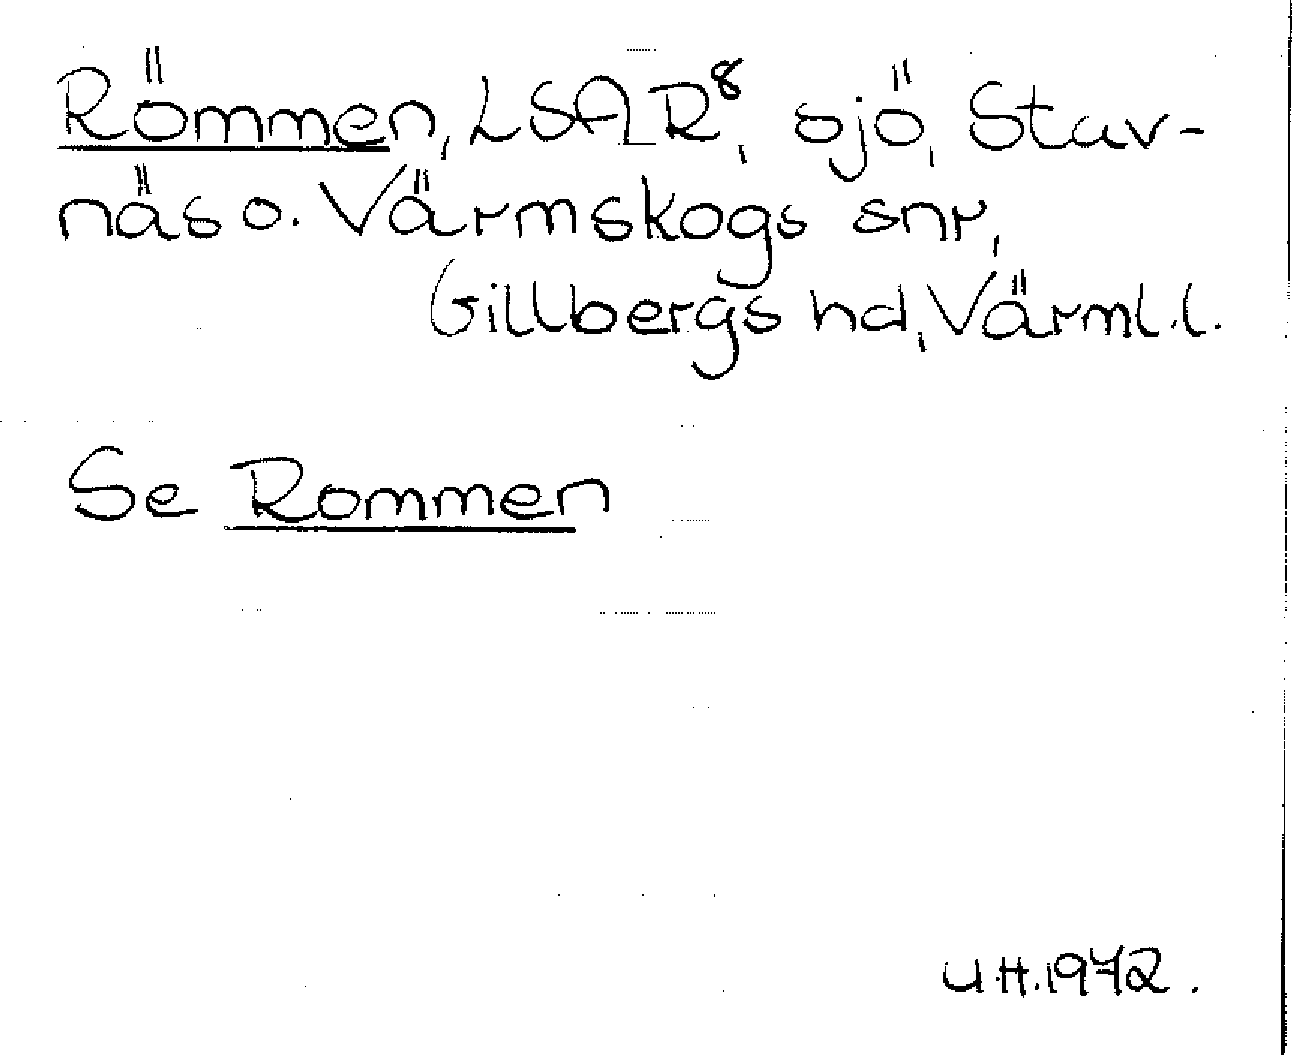 Römmen, LSAR⁸, sjö, Stav-
näs o. Värmskogs snr,
Gillbergs hd, Värml.l.
Se Rommen
U.H.1972.